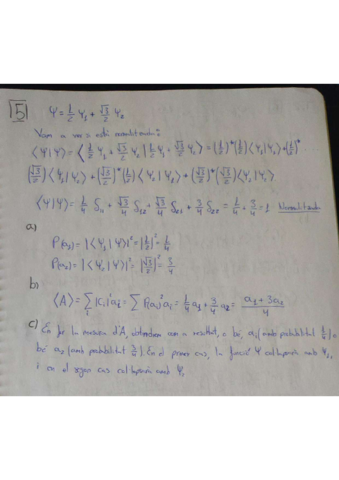 15 Ψ = 1/2 Ψ₁ + √3/2 Ψ₂
Vam a veure si està normalitzada:
⟨Ψ|Ψ⟩ = ⟨1/2 Ψ₁ + √3/2 Ψ₂ | 1/2 Ψ₁ + √3/2 Ψ₂⟩ = (1/2)* (1/2) ⟨Ψ₁|Ψ₁⟩ + (1/2)*
(√3/2) ⟨Ψ₁|Ψ₂⟩ + (√3/2)* (1/2) ⟨Ψ₂|Ψ₁⟩ + (√3/2)* (√3/2) ⟨Ψ₂|Ψ₂⟩
⟨Ψ|Ψ⟩ = 1/4 δ₁₁ + √3/4 δ₁₂ + √3/4 δ₂₁ + 3/4 δ₂₂ = 1/4 + 3/4 = 1 Normalitzada
a)
P(a₁) = |⟨Ψ₁|Ψ⟩|² = |1/2|² = 1/4
P(a₂) = |⟨Ψ₂|Ψ⟩|² = |√3/2|² = 3/4
b)
⟨A⟩ = Σ |Cᵢ|² aᵢ = Σ P(aᵢ) aᵢ = 1/4 a₁ + 3/4 a₂ = a₁ + 3a₂ / 4
c) En fer la mesura d'A, obtendrem com a resultat, o bé, a₁ (amb probabilitat 1/4) o
bé a₂ (amb probabilitat 3/4). En el primer cas, la funció Ψ col·lapsarà amb Ψ₁,
i en el segon cas col·lapsarà amb Ψ₂